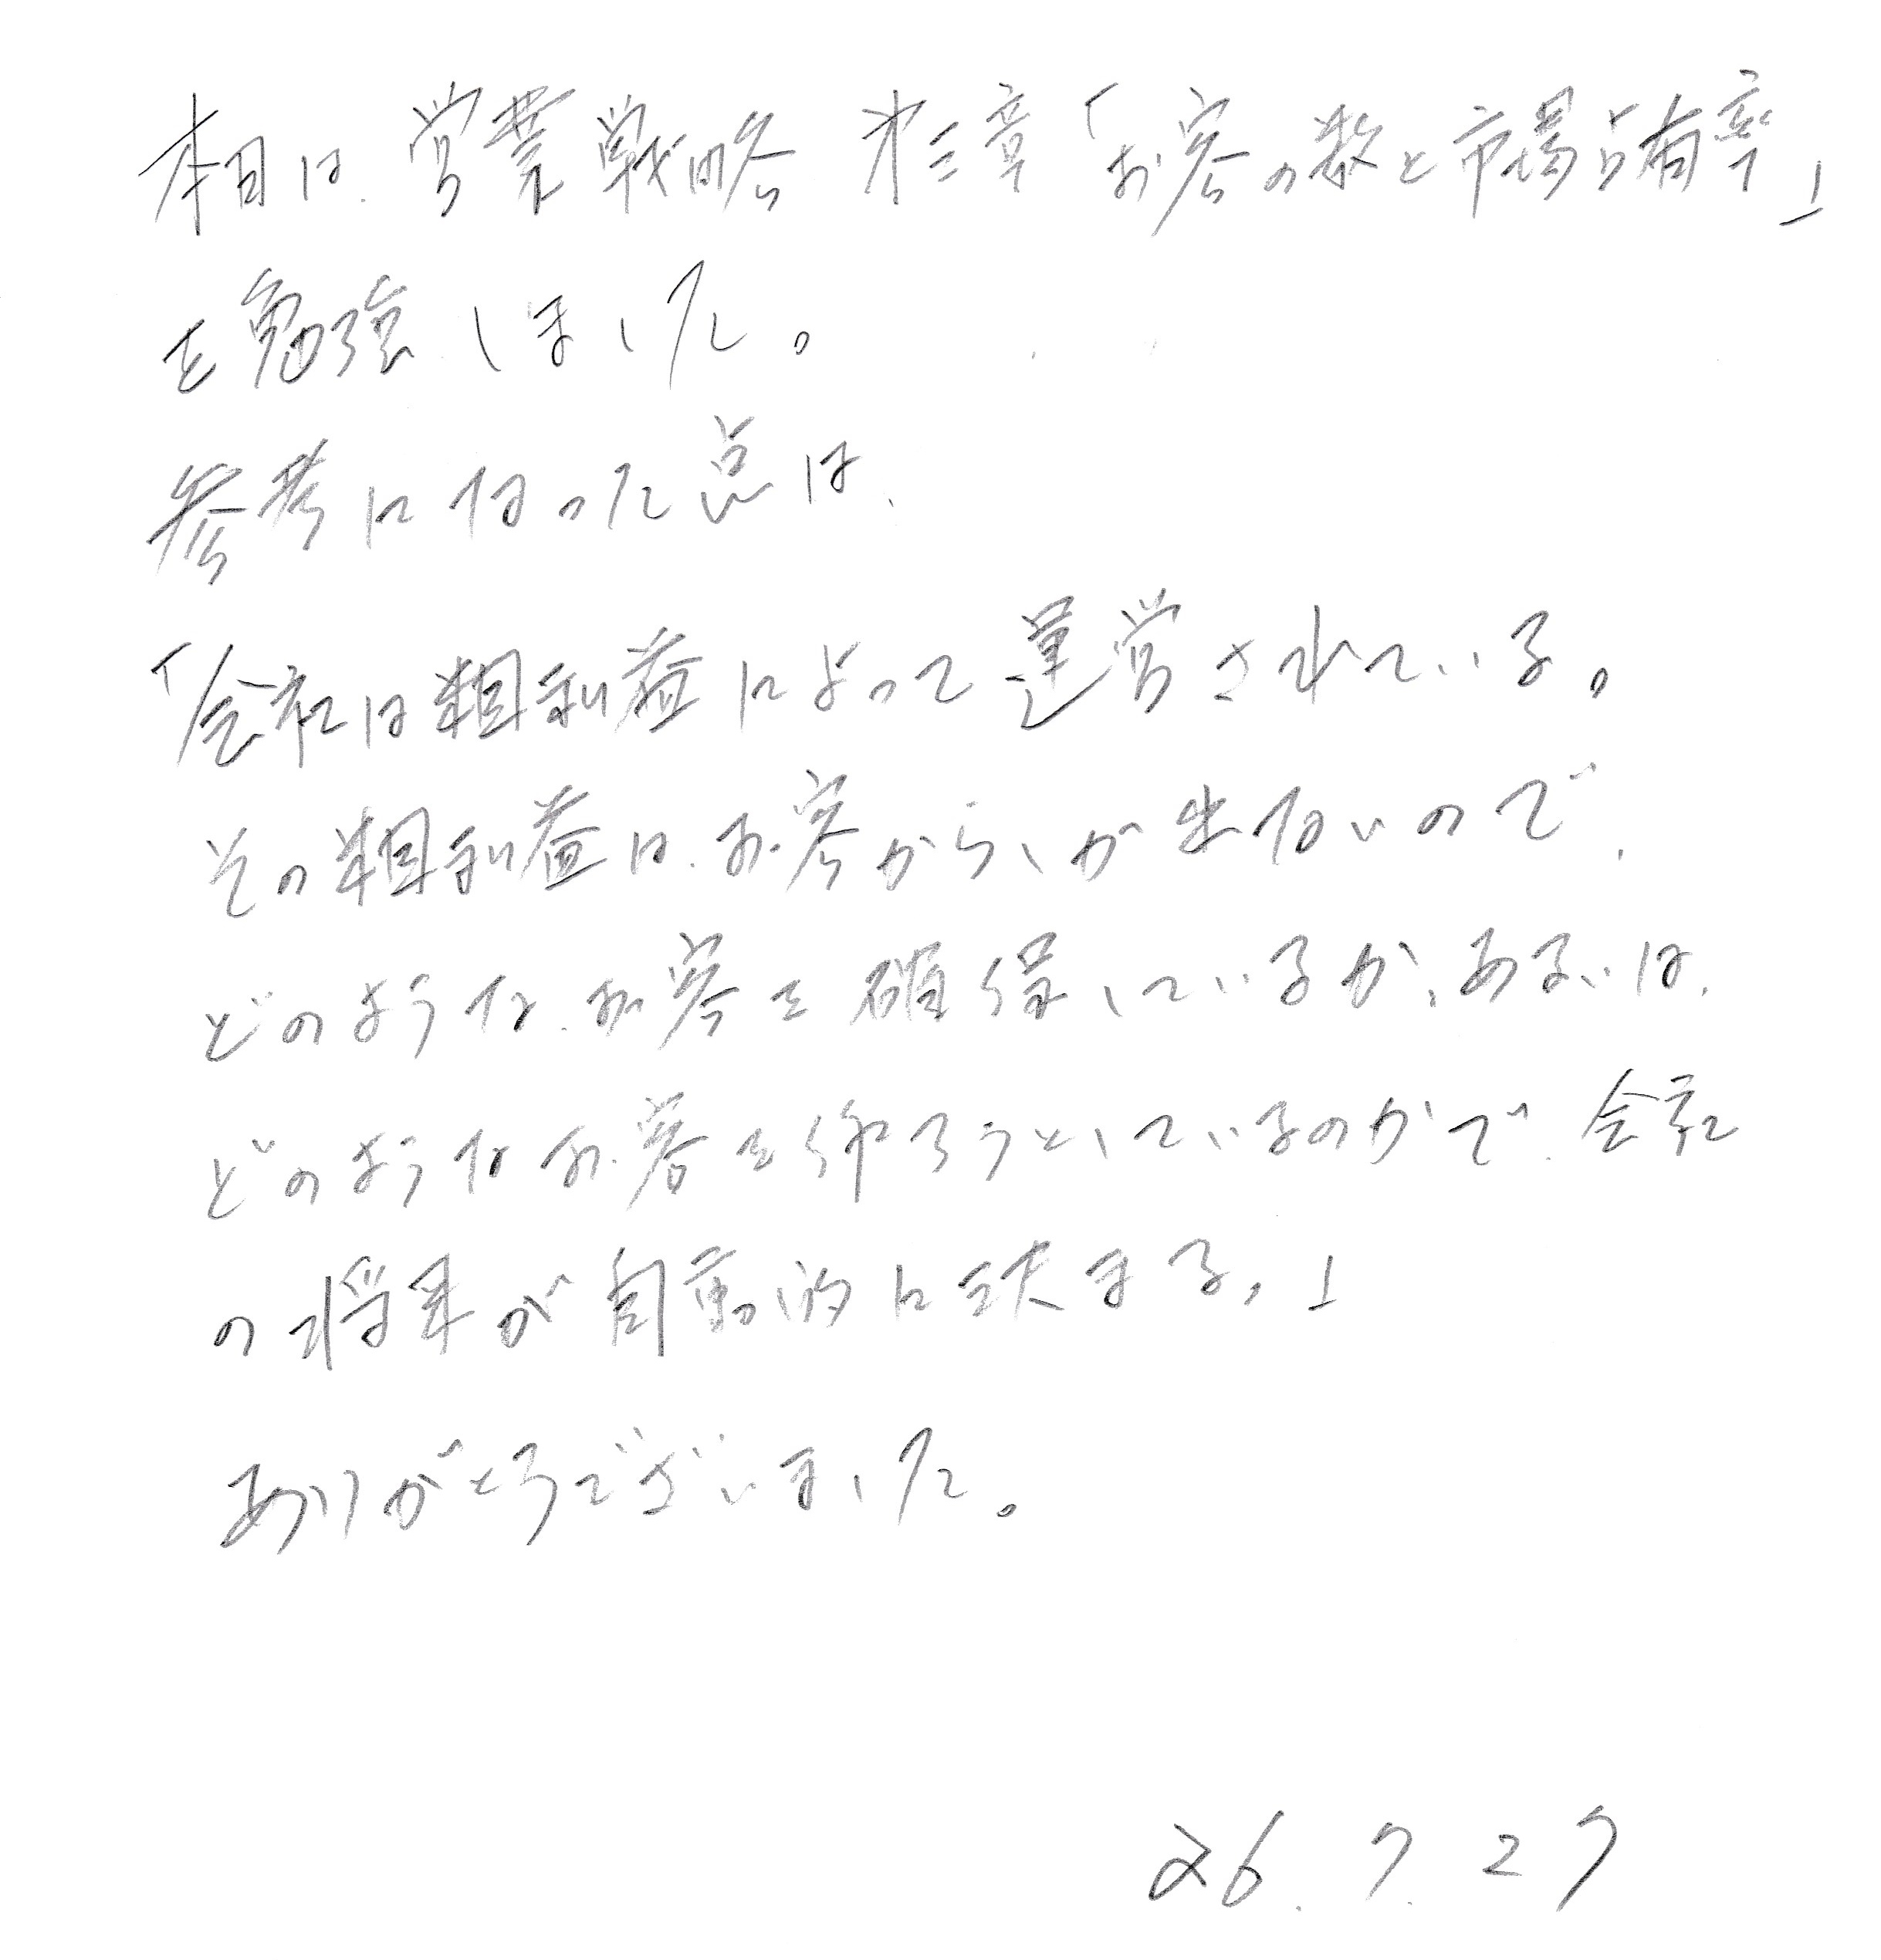 本日は、営業戦略 才三章「お客の数と市場占有率」
を勉強しました。
参考になった点は、
「会社は粗利益によって運営されている。
その粗利益は、お客からしか出ないので、
どのような、お客を確保しているか、あるいは、
どのようなお客を作ろうとしているのかで、会社
の将来が自動的に決まる。」
ありがとうございました。
26.7.27